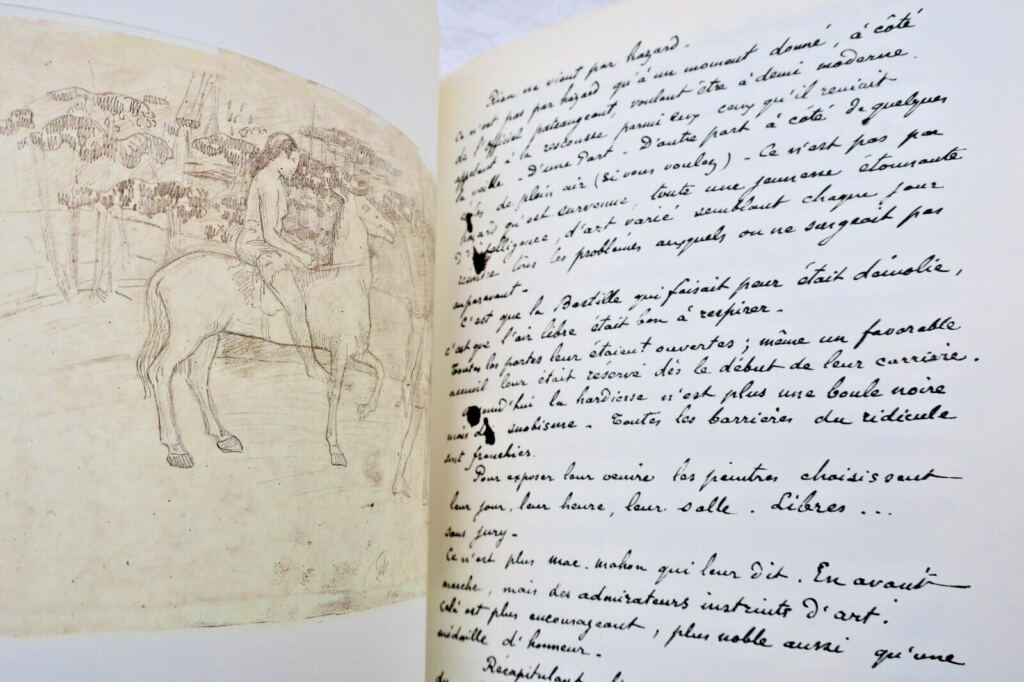 Rien ne vient par hazard.
Ce n'est pas par hazard qu'à un moment donné, à côté
de l'officiel pataugeant, voulant être à demi moderne
appelant à la rescousse parmi eux ceux qu'il reniait
la veille - D'une Part - D'autre part à côté de quelques
de plein air (si vous voulez) - Ce n'est pas par
hazard qu'est survenue, toute une jeunesse étonnante
d'intelligence, d'art varié semblant chaque jour
tous les problémes auxquels on ne songeait pas
auparavant -
C'est que la Bastille qui faisait peur était démolie,
c'est que l'air libre était bon à respirer -
Toutes les portes leur étaient ouvertes ; même un favorable
accueil leur était reservé dès le début de leur carriére.
Aujourd'hui la hardiesse n'est plus une boule noire
mais du snobisme - Toutes les barrières du ridicule
sont franchies.
Pour exposer leur oeuvre les peintres choisissent
leur jour, leur heure, leur salle. Libres ...
sans jury -
Ce n'est plus mac. mahon qui leur dit. En avant
marche, mais des admirateurs instruits d'art.
Celà est plus encourageant, plus noble aussi qu'une
médaille d'honneur -
Récapitulant